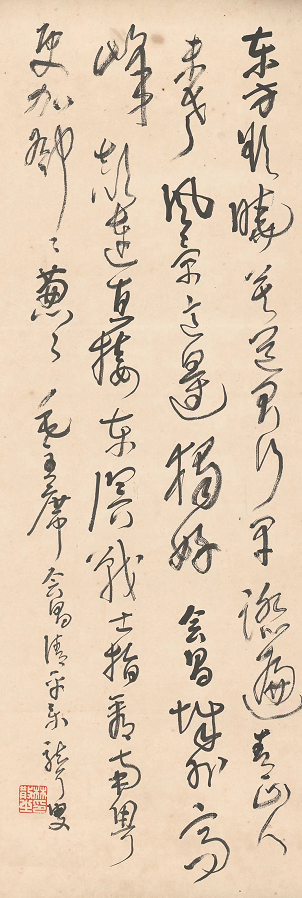 东方欲晓莫道君行早踏遍青山人
未老风景这边独好会昌城外高
峰颠连直接东溟战士指看南粤
更加郁々葱々 毛主席 会昌清平乐 散耳叟
林散之印